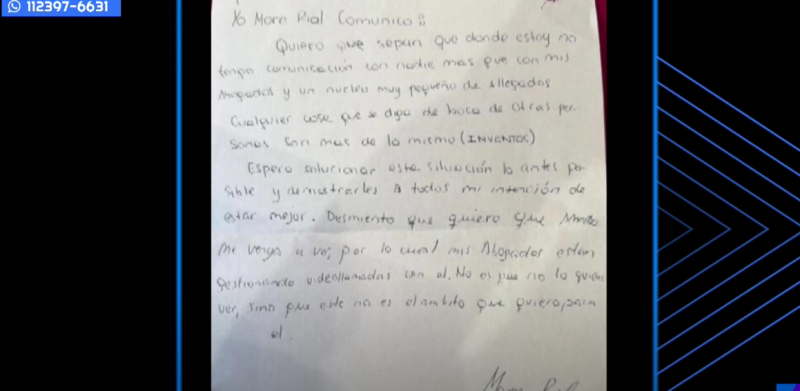 112397-6631
Yo More Rial Comunico:
Quiero que sepan que donde estoy no
tengo comunicación con nadie mas que con mis
Abogados y un nucleo muy pequeño de allegados
Cualquier cosa que se diga de boca de otras per
sonas son mas de lo mismo (INVENTOS)
Espero solucionar esta situación lo antes po
sible y demostrarles a todos mi intención de
estar mejor. Desmiento que quiero que
me venga a ver, por lo cual mis Abogados estan
gestionando videollamadas con el. No es que no lo quiera
ver, sino que este no es el ambito que quiero para
el
More